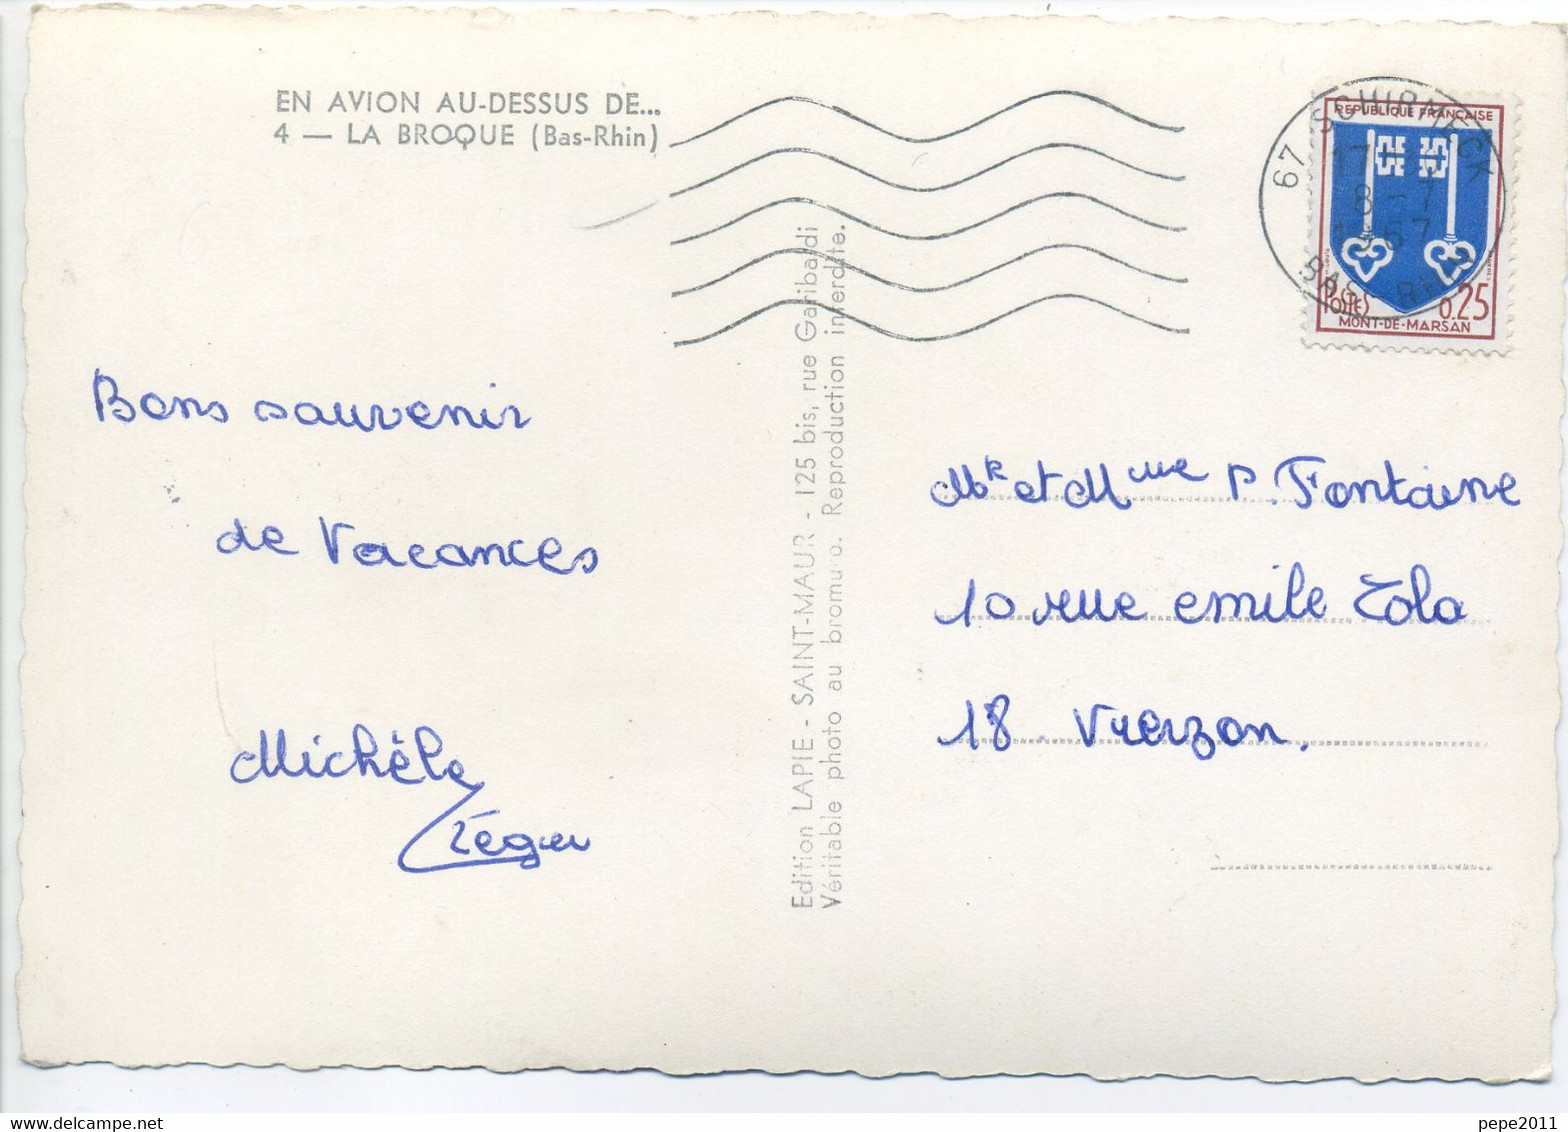 EN AVION AU-DESSUS DE...
4 — LA BROQUE (Bas-Rhin)
67 SCHIRMECK
17 H
8 - 7
1967
BAS - RHIN
REPUBLIQUE FRANÇAISE
POSTES
0,25
MONT-DE-MARSAN
Bons souvenir
de Vacances
Michèle
Edition LAPIE - SAINT-MAUR - 125 bis, rue Garibaldi
Véritable photo au bromure. Reproduction interdite.
Mr et Mme P. Fontaine
10 rue emile Zola
18 Vierzon.
pepe2011